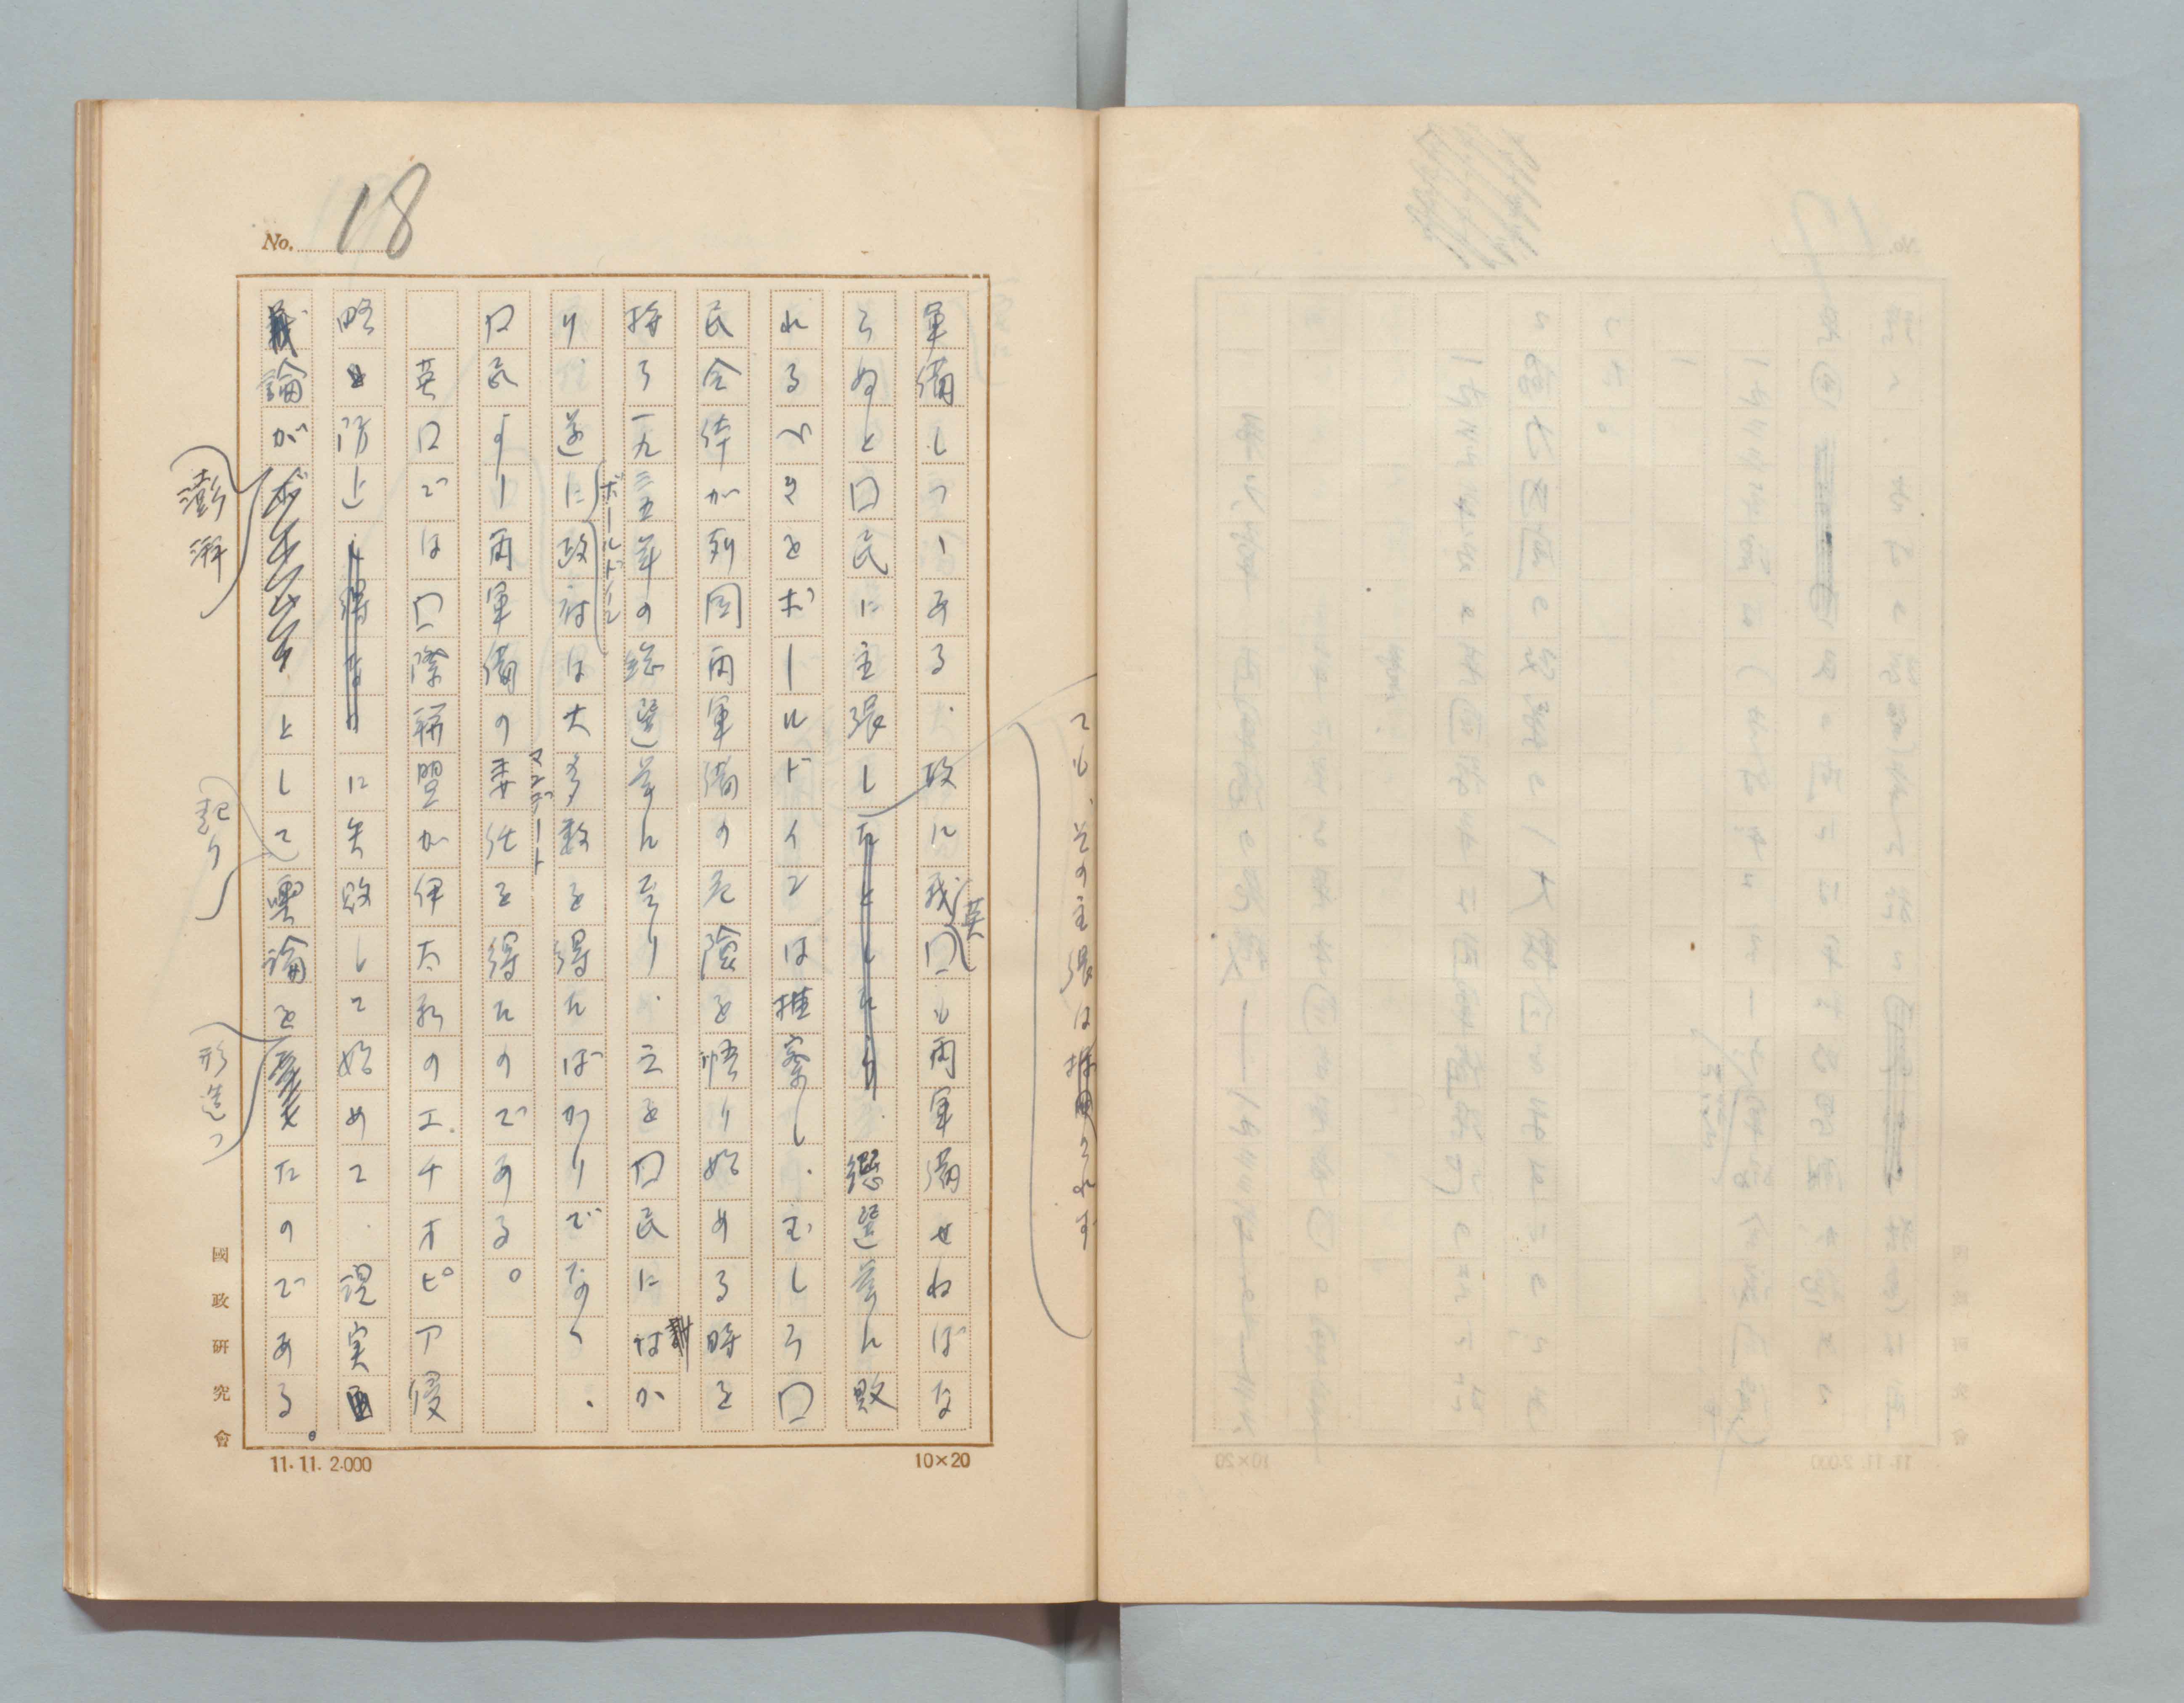 No. 18
軍備しつゝある、故に我英口も再軍備せねばな
らぬと口民に主張し
ても、その主張は採用されず
、總選挙に敗
れるべきをボールドインは推察し、むしろ口
民全体が列国再軍備の危険を悟り始める時を
待ち一九三五年の総選挙に至り、之を口民に
り、遂にボールドイン政府は大多数を得たばかりでなく、
口民より再軍備の委任を得たのである。
マンデート
英口では口際聯盟が伊太利のエチオピア侵
略を防止に失敗して始めて、現実
議論が澎湃として起り輿論を形造つたのである。
國政研究會
11.11. 2.000
10×20